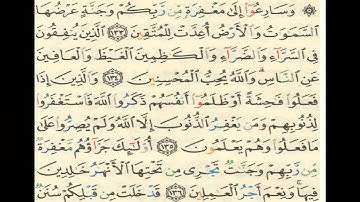 وَسَارِعُوٓا۟ إِلَىٰ مَغْفِرَةٍ مِّن رَّبِّكُمْ وَجَنَّةٍ عَرْضُهَا
ٱلسَّمَٰوَٰتُ وَٱلْأَرْضُ أُعِدَّتْ لِلْمُتَّقِينَ ١٣٣ ٱلَّذِينَ يُنفِقُونَ
فِى ٱلسَّرَّآءِ وَٱلضَّرَّآءِ وَٱلْكَٰظِمِينَ ٱلْغَيْظَ وَٱلْعَافِينَ
عَنِ ٱلنَّاسِ وَٱللَّهُ يُحِبُّ ٱلْمُحْسِنِينَ ١٣٤ وَٱلَّذِينَ إِذَا
فَعَلُوا۟ فَٰحِشَةً أَوْ ظَلَمُوٓا۟ أَنفُسَهُمْ ذَكَرُوا۟ ٱللَّهَ فَٱسْتَغْفَرُوا۟
لِذُنُوبِهِمْ وَمَن يَغْفِرُ ٱلذُّنُوبَ إِلَّا ٱللَّهُ وَلَمْ يُصِرُّوا۟ عَلَىٰ
مَا فَعَلُوا۟ وَهُمْ يَعْلَمُونَ ١٣٥ أُو۟لَٰٓئِكَ جَزَآؤُهُم مَّغْفِرَةٌ
مِّن رَّبِّهِمْ وَجَنَّٰتٌ تَجْرِى مِن تَحْتِهَا ٱلْأَنْهَٰرُ خَٰلِدِينَ
فِيهَا وَنِعْمَ أَجْرُ ٱلْعَٰمِلِينَ ١٣٦ قَدْ خَلَتْ مِن قَبْلِكُمْ سُنَنٌ